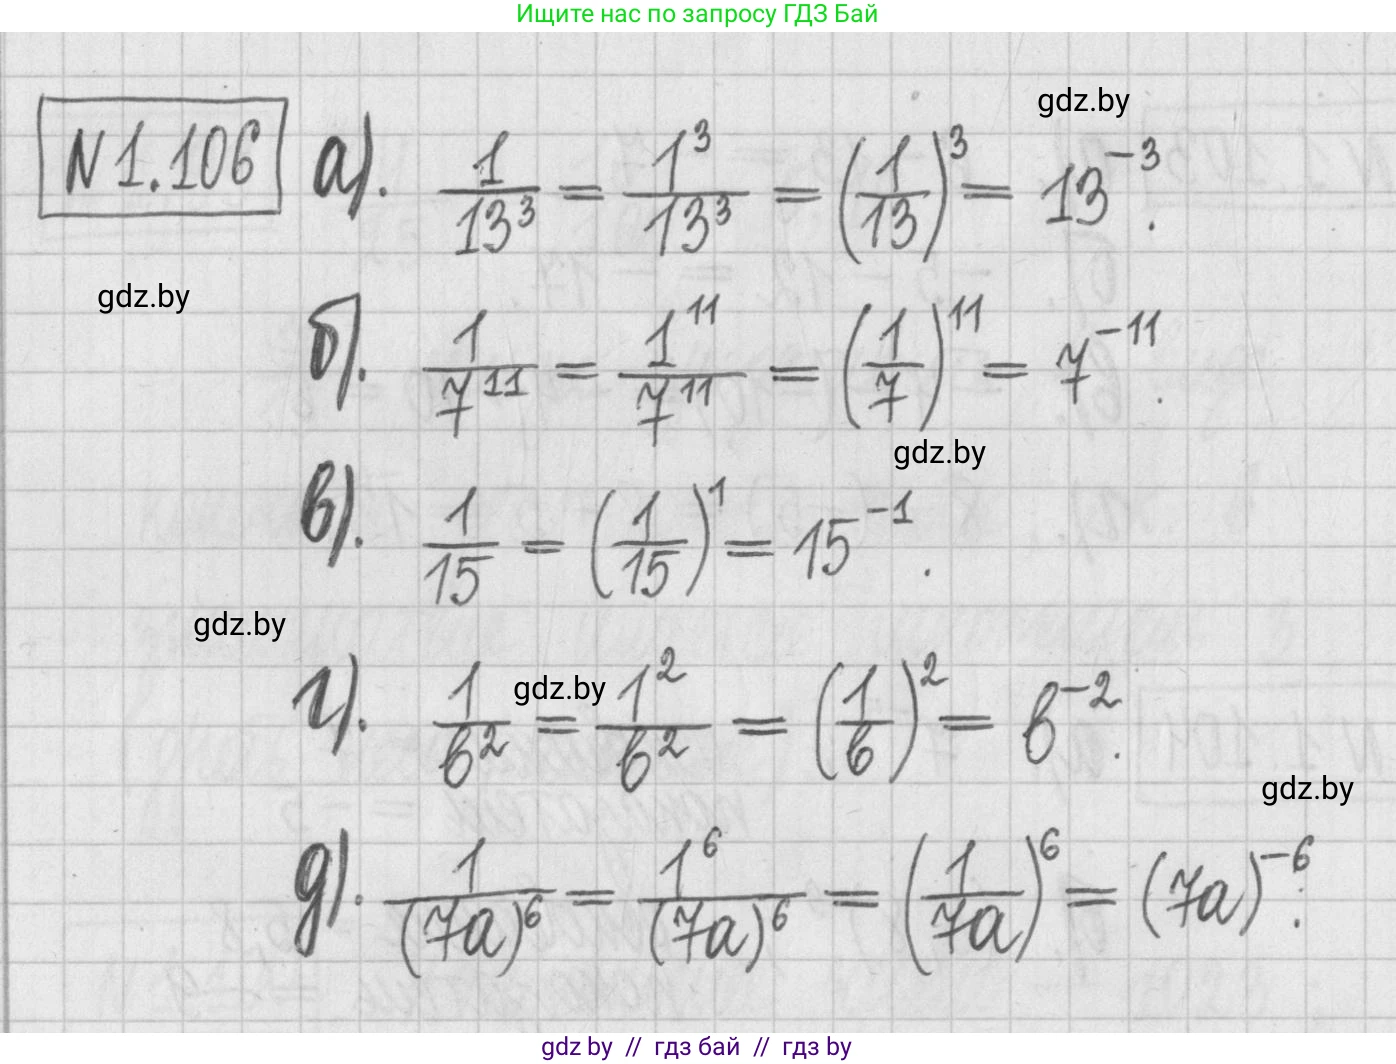 Ищите нас по запросу ГДЗ Бай
gdz.by
N 1.106 а). 1/13³ = 1³/13³ = (1/13)³ = 13⁻³.
gdz.by
б). 1/7¹¹ = 1¹¹/7¹¹ = (1/7)¹¹ = 7⁻¹¹.
gdz.by
в). 1/15 = (1/15)¹ = 15⁻¹.
gdz.by
gdz.by
г). 1/b² = 1²/b² = (1/b)² = b⁻².
gdz.by
д). 1/(7a)⁶ = 1⁶/(7a)⁶ = (1/7a)⁶ = (7a)⁻⁶.
gdz.by // гдз бай // гдз by